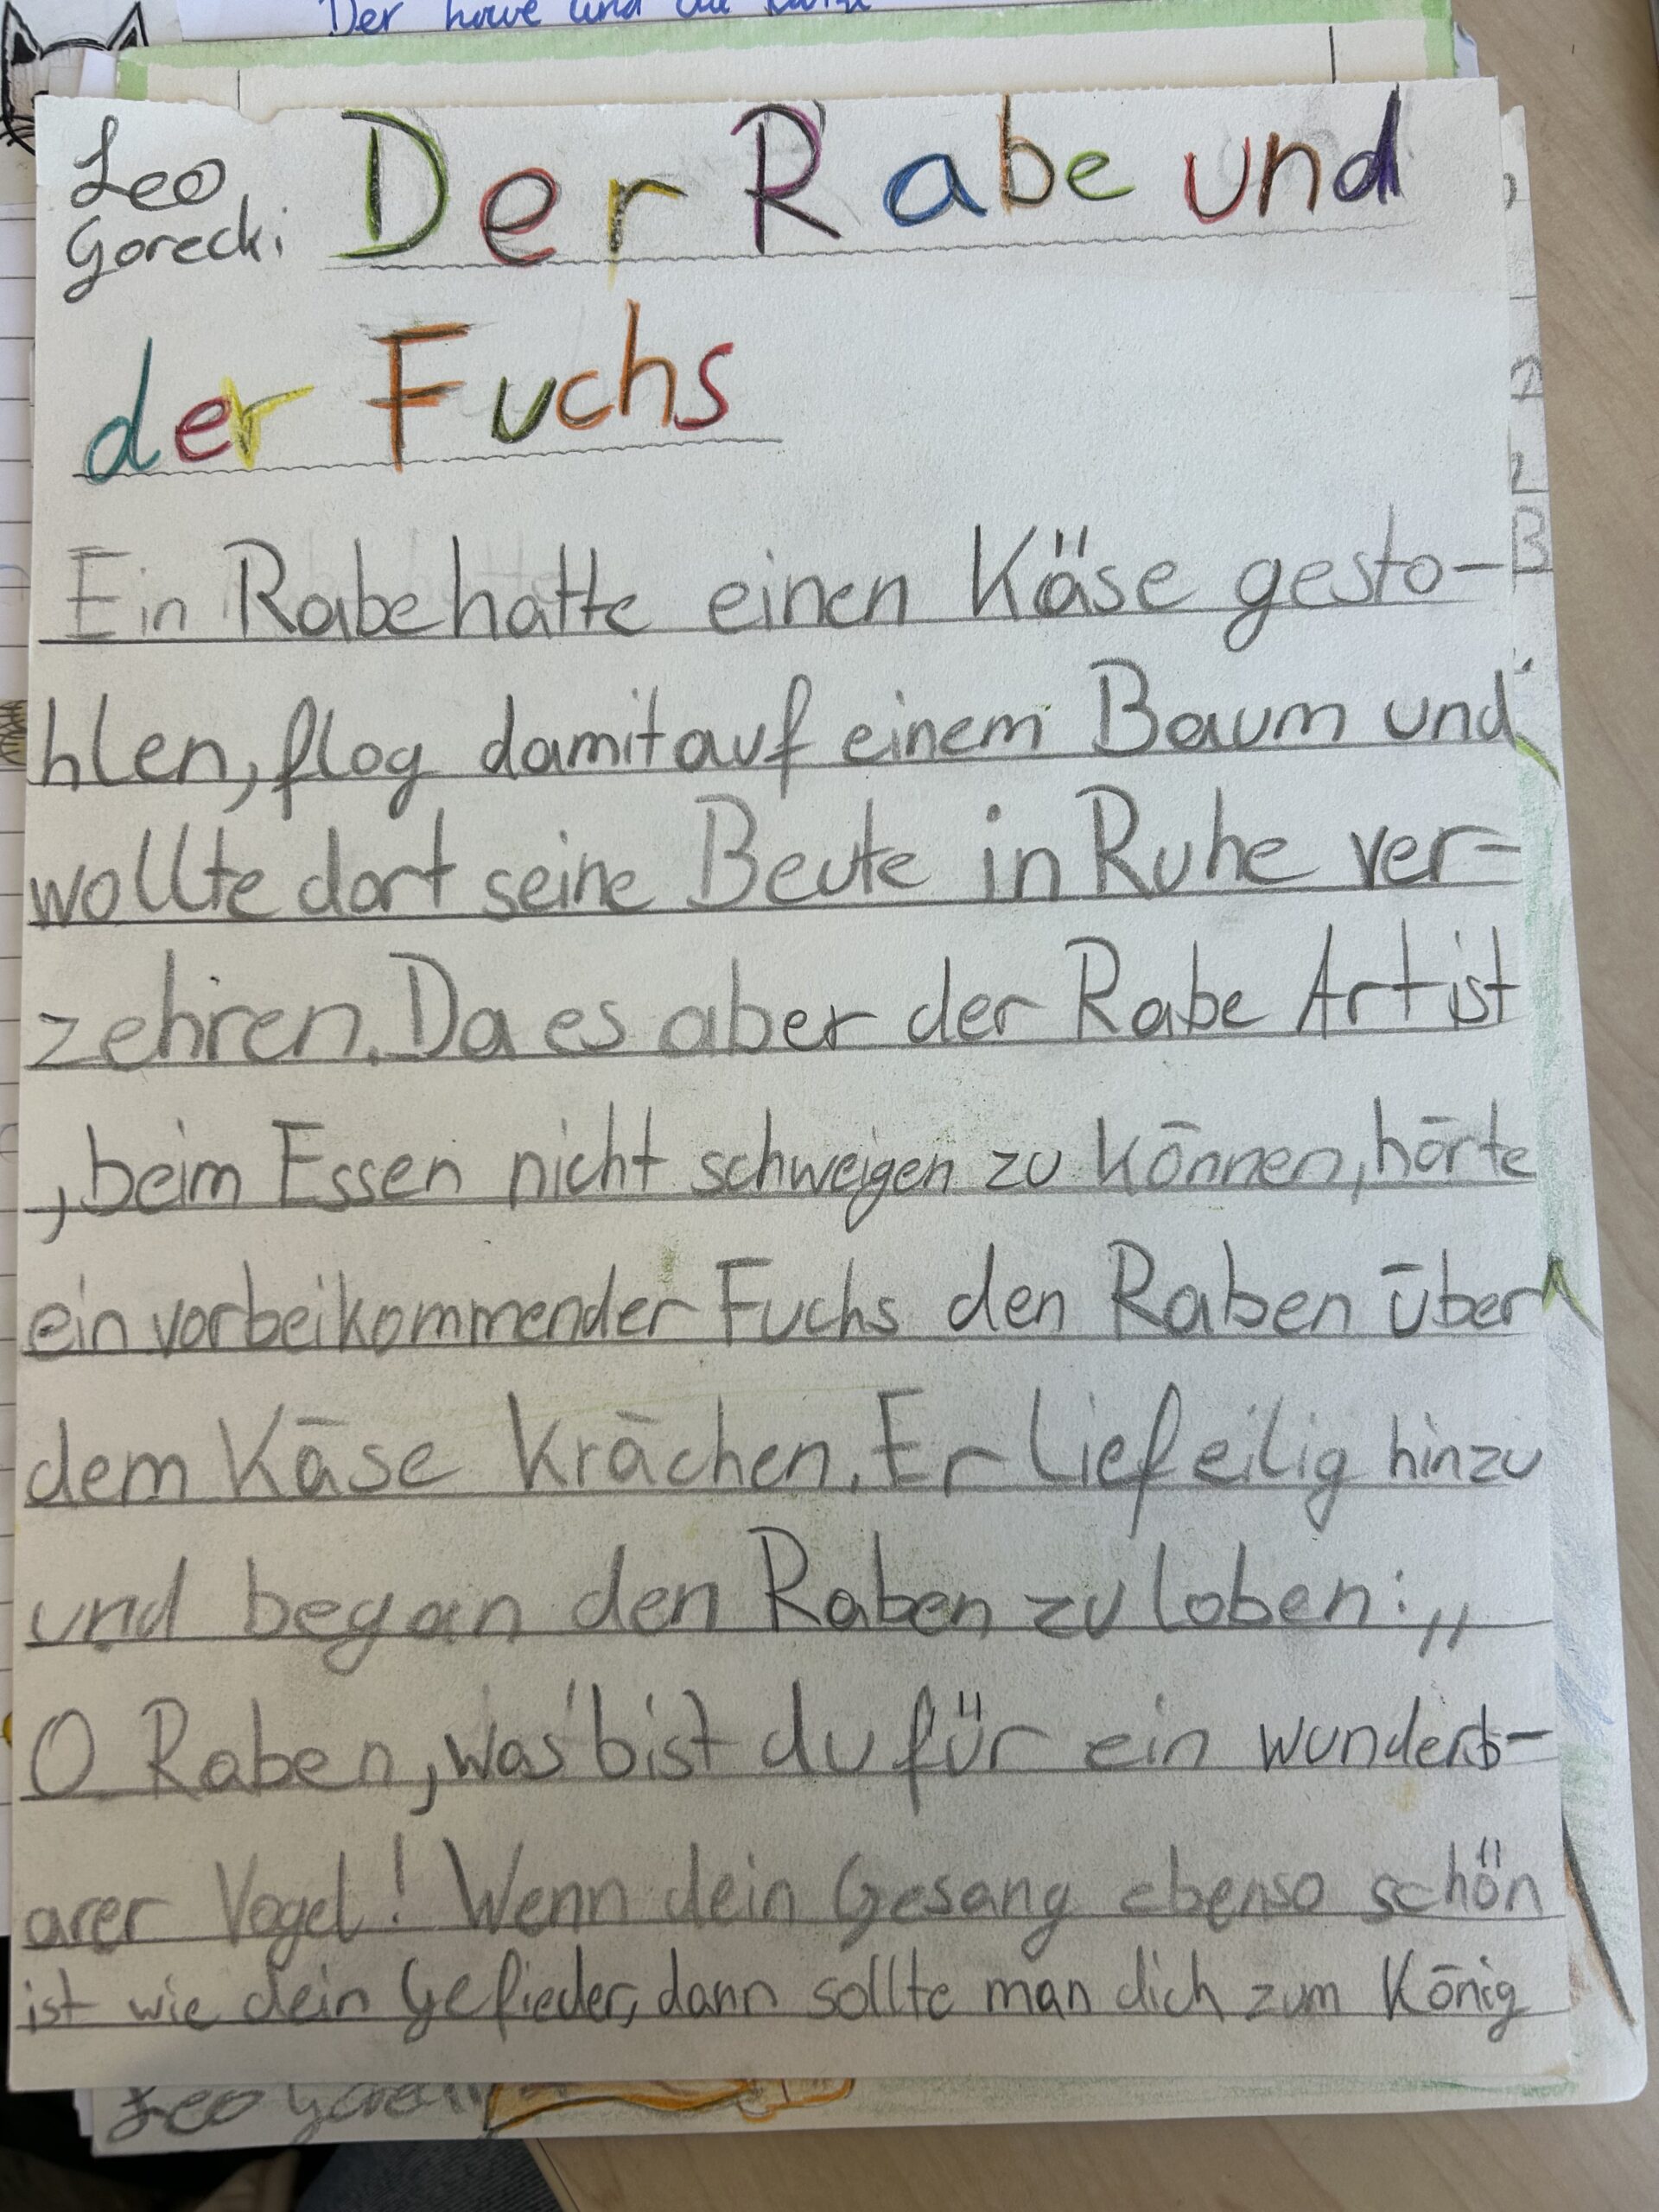 Der
und
Leo Der Rabe und
Gorecki
der Fuchs
Ein Rabe hatte einen Käse gesto-
hlen, flog damit auf einem Baum und
wollte dort seine Beute in Ruhe ver-
zehren. Da es aber der Rabe Art ist
, beim Essen nicht schweigen zu können, hörte
ein vorbeikommender Fuchs den Raben über
dem Käse krächen. Er lief eilig hinzu
und began den Raben zu loben: „
O Raben, was bist du für ein wunderb-
arer Vogel! Wenn dein Gesang ebenso schön
ist wie dein Gefieder, dann sollte man dich zum König
Leo